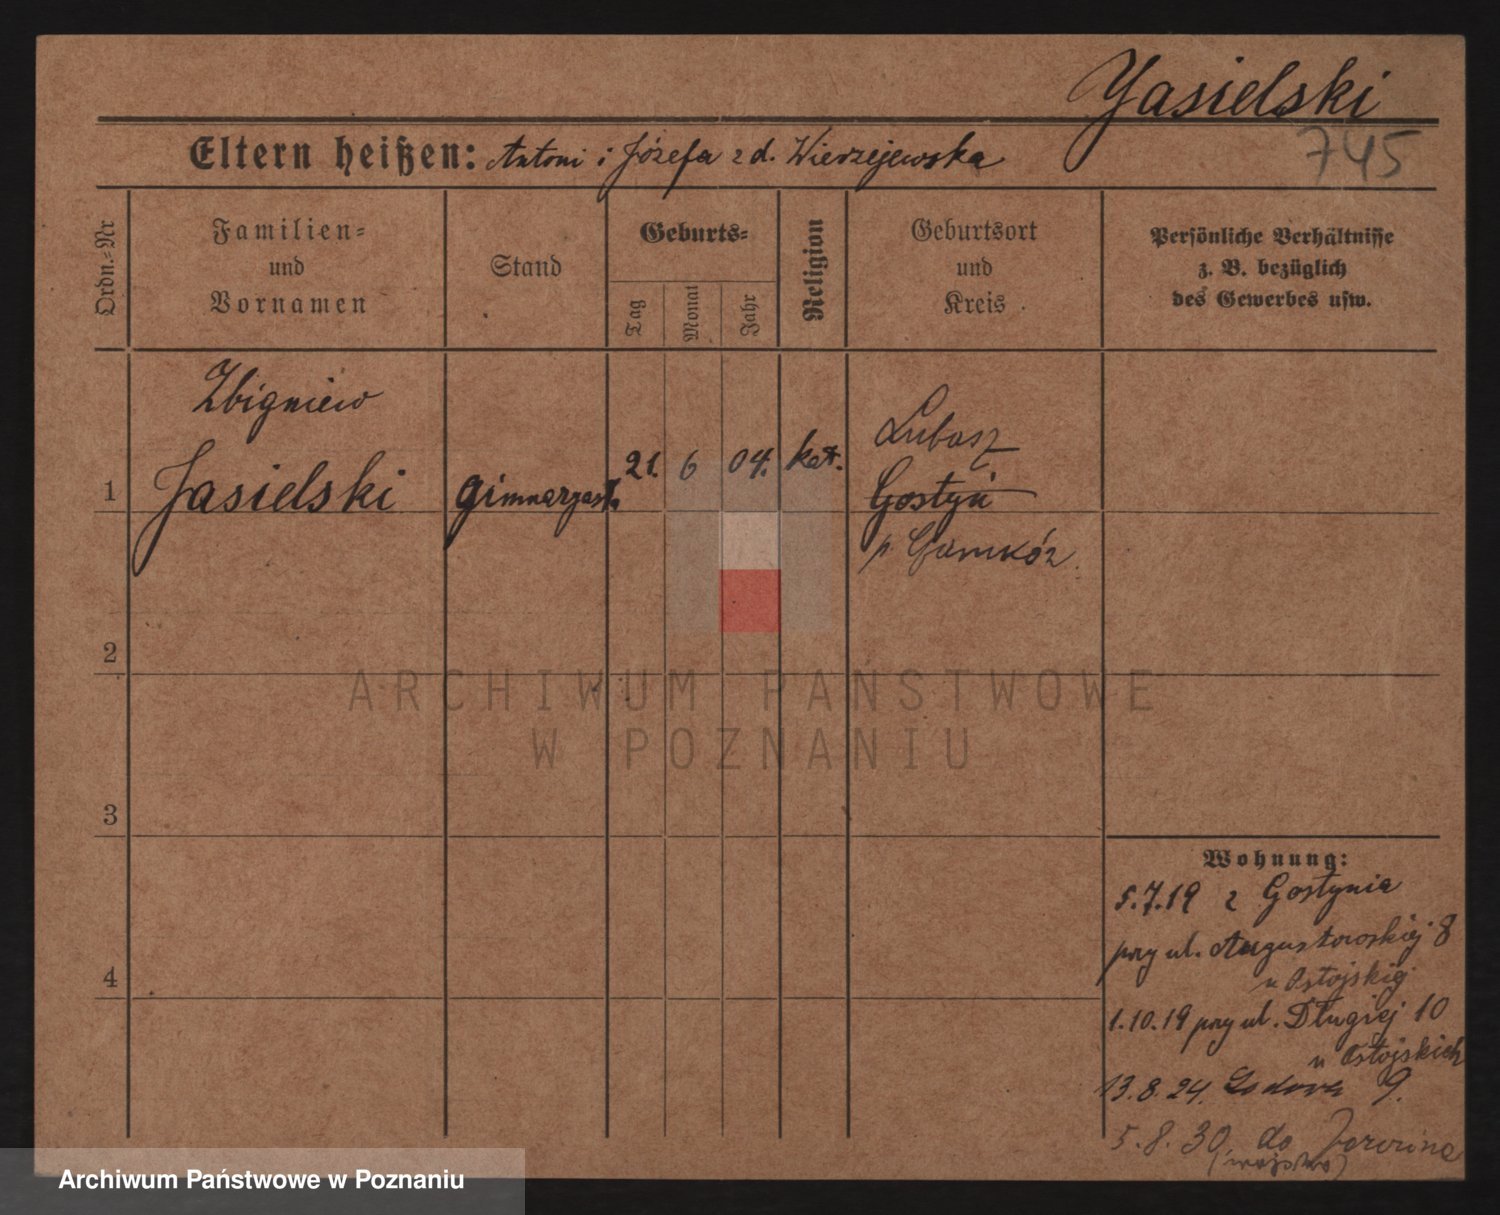 Yasielski
745
Eltern heißen: Antoni i Józefa z d. Wierzejewska
Ordn.-Nr
Familien-
und
Vornamen
Stand
Geburts-
Tag
Monat
Jahr
Religion
Geburtsort
und
Kreis
Persönliche Verhältnisse
z. B. bezüglich
des Gewerbes usw.
Zbigniew
Jasielski
1
gimnazjast.
21. 6 04. kat.
Lubasz
Gostyń
p.
2
ARCHIWUM PAŃSTWOWE
W POZNANIU
3
4
Wohnung:
5.7.19 z Gostynia
przy ul. Augustowskiej 8
u Ostojskiej
1.10.19 przy ul. Długiej 10
u Ostojskich
13.8.24. 9.
5.8.30 do
Archiwum Państwowe w Poznaniu